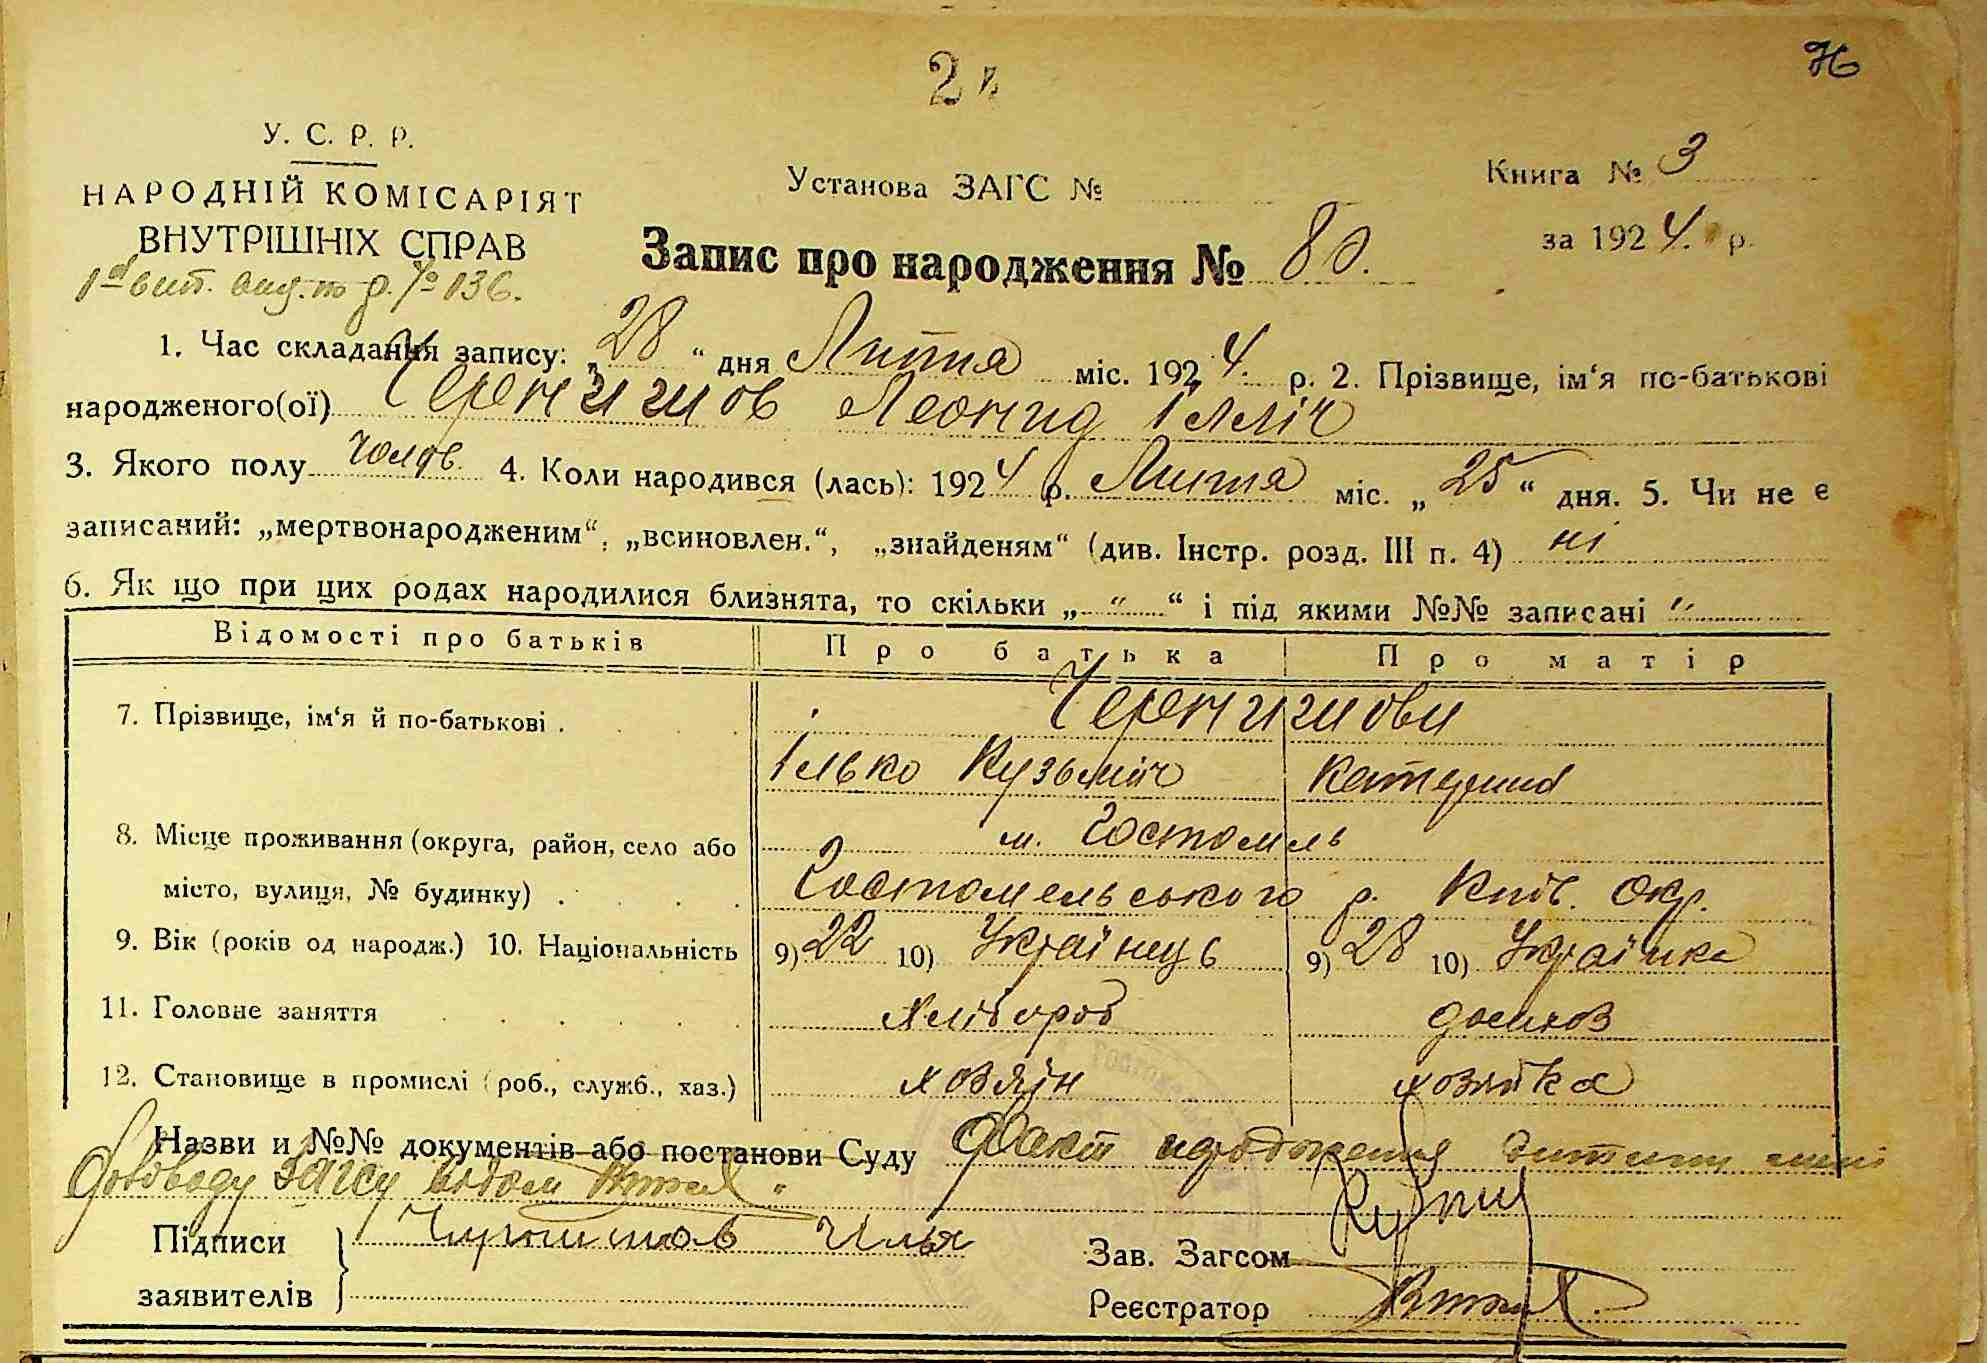 2
У. С. Р. Р.
НАРОДНІЙ КОМІСАРІЯТ
ВНУТРІШНІХ СПРАВ
Установа ЗАГС №
Книга № 3
за 1924. р.
Запис про народження № 80.
№ 136.
1. Час складання запису: „28“ дня Лютня міс. 1924. р. 2. Прізвище, ім‘я по-батькові
народженого(ої) Леонид Ілліч
3. Якого полу чолов. 4. Коли народився (лась): 1924 р. Лютня міс. „25“ дня. 5. Чи не є
записаний: „мертвонародженим“, „всиновлен.“, „знайденям“ (див. Інстр. розд. III п. 4) ні
6. Як що при цих родах народилися близнята, то скільки „ “ “ і під якими №№ записані “
Відомості про батьків Про батька Про матір
7. Прізвище, ім‘я й по-батькові .
Ілько Кузьміч Катерина
8. Місце проживання (округа, район, село або м. Гостомель
місто, вулиця, № будинку) . Гостомельського р. Київ. окр.
9. Вік (років од народж.) 10. Національність 9) 22 10) Українець 9) 28 10) Українка
11. Головне заняття хлібороб домахоз
12. Становище в промислі (роб., служб., хаз.) хозяїн хозяйка
Назви и №№ документів або постанови Суду Факт народження дитини мені
діловоду Загсу відом
Підписи Илья
заявителів
Зав. Загсом
Реєстратор